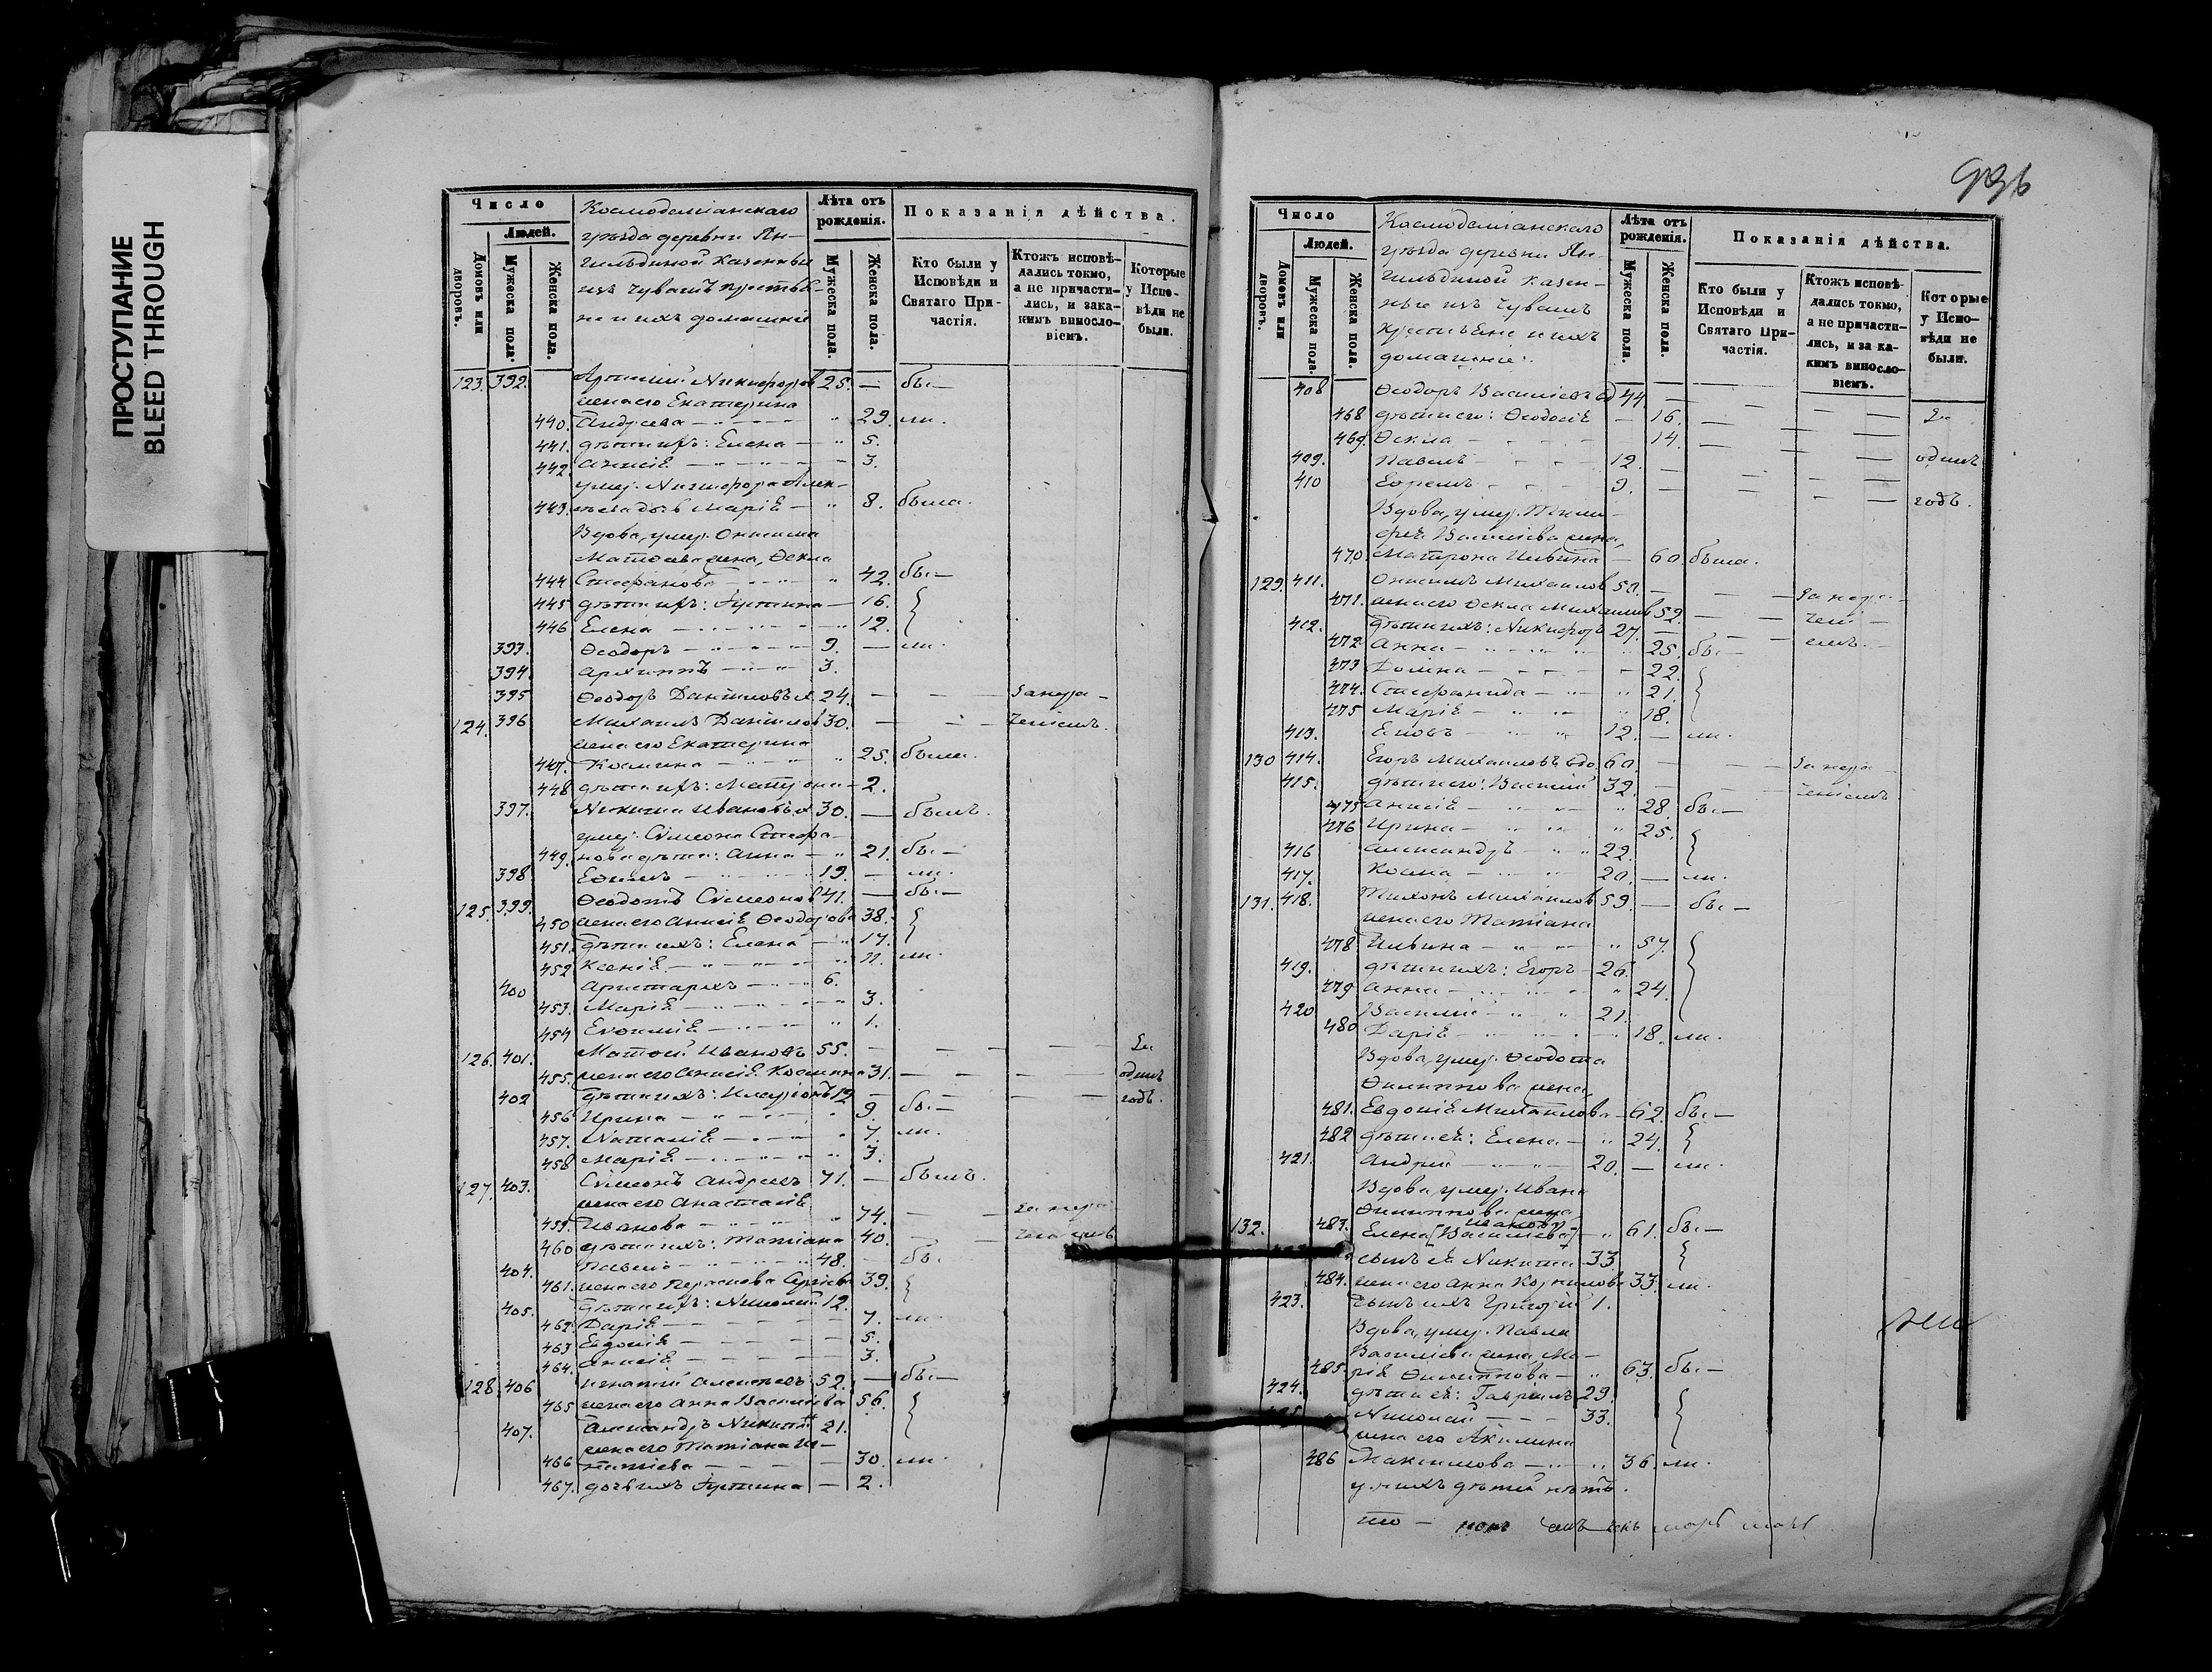 ПРОСТУПАНИЕ
BLEED THROUGH
Число
Людей.
Домовъ или дворовъ.
Мужеска пола.
Женска пола.
Космодеміанскаго
уѣзда деревни Ян-
гильдиной казенные
изъ чувашъ крестья-
не и ихъ домашніе
Лѣта отъ рожденія.
Мужеска пола.
Женска пола.
Показанія дѣйства.
Кто были у Исповѣди и Святаго Причастія.
Ктожъ исповѣ-дались токмо, а не причасти-лись, и зака-кимъ винословіемъ.
Которые у Испо-вѣди не были.
123. 392. Никифоровъ 25. — бы —
жена его Екатерина
440. Андреева — " 29. ли.
441. дѣти ихъ: Елена — " 5.
442. Анисія — " 3.
умер. Никифора Алек-
443. дочь Марія — " 8. была.
Вдова, умер. Онисима
Матѳеева жена, Ѳекла
444 Стефанова — " 42. бы —
445 дѣти ихъ: Іустина — 16.
446 Елена — " 12.
393. Ѳеодоръ — 9. — ли.
394. Архиппъ — 3.
395 Ѳеодоръ Даниловъ х. 24. — — За нера-
124. 396 Михаилъ Даниловъ 30. — — ченіемъ.
жена его Екатерина
447. Космина — " 25. была.
448 дѣти ихъ: Матрона — 2.
397. Никита Ивановъ х 30. — былъ.
умер. Сѵмеона Стефа-
449. нова дѣти: Анна — " 21. бы —
398 Еѳимъ — 19. — ли.
125. 399. Ѳеодотъ Сѵмеоновъ 41. — бы —
450 жена его Анисія Ѳеодорова 38.
451. дѣти ихъ: Елена — " 17.
452 Ксенія — " 11. ли.
400 Аристархъ — 6.
453. Марія — " 3.
454 Евѳимія — " 1.
126. 401. Матѳей Ивановъ 55. — — — За
455. жена его Анисія Космина 31. — — — одинъ
402 дѣти ихъ: Иларіонъ 12 — — — годъ.
456 Ирина — 9. бы —
457. Наталія — " 7. ли.
458 Марія — " 3.
127. 403. Сѵмеонъ Андреевъ 71. — былъ.
жена его Анастасія
459. Иванова — 74. — — За нера-
460 дѣти ихъ: Татіана 40. — — ченіемъ
404. Павелъ — 48. — бы —
461. жена его Параскева 39.
405. дѣти ихъ: Николай 12.
462 Дарія — 7. ли.
463 Евдокія — 5.
464. Анисія — 3.
128. 406 Игнатій Алексѣевъ 52. — бы —
465 жена его Анна Васильева 56.
407. Александръ Никит 21.
жена его Татіана Иг-
466 натіева — 30. ли.
467. дочь ихъ Іустина — 2.
Число
Людей.
Домовъ или дворовъ.
Мужеска пола.
Женска пола.
Космодеміанскаго
уѣзда деревни Ян-
гильдиной казен-
ные изъ чувашъ
крестьяне и ихъ
домашніе:
Лѣта отъ рожденія.
Мужеска пола.
Женска пола.
Показанія дѣйства.
Кто были у Исповѣди и Святаго При-частія.
Ктожъ исповѣ-дались токмо, а не причасти-лись, и за ка-кимъ винословіемъ.
Которые у Испо-вѣди не были.
408 Ѳеодоръ Васильевъ вд 44. — — —
468 дѣти его: Ѳеодосія — 16. — — За
469. Ѳекла — 14. — —
409. Павелъ — 12. — — одинъ
410 Ефремъ — 9. — — годъ.
Вдова, умер. Тимо-
фея Васильева жена,
470. Матрона Ильина — 60. была.
129. 411. Онисимъ Михаиловъ 50. — — За нера-
471. жена его Ѳекла Михаилова 52. — — чені-
412. дѣти ихъ: Никифоръ 27. — — емъ.
472 Анна — 25. бы —
473 Домна — 22.
474. Стефанида — " 21.
475 Марія — " 18.
413. Іаковъ — 12. — ли.
130 414. Егоръ Михаиловъ вдо. 60. — — За нера-
415. дѣти его: Василій 32. — — ченіемъ
475 Анисія — " 28. бы —
476 Ирина — " 25.
416 Александръ — 22.
417. Косма — 20. — ли.
131. 418. Тихонъ Михаиловъ 59. — бы —
жена его Татіана
478 Ильина — " 57.
419. дѣти ихъ: Егоръ — 26.
479 Анна — " 24.
420 Василій — 21.
480 Дарія — 18. ли.
Вдова, умер. Ѳеодота
Филиппова жена,
481. Евдокія Михаилова — 62. бы —
482 дѣти ея: Елена — " 24.
421. Андрей — 20. — ли.
Вдова, умер. Ивана
Филиппова жена
Иванова
132. 483. Елена [Васильева] — " 61. бы —
сынъ ея Никита 33.
484. жена его Анна Корнилова 33. ли.
423. сынъ ихъ Григорій 1.
Вдова, умер. Павла
Васильева жена, Ма-
485. рія Филиппова — " 63. бы —
424. дѣти ея: Гавріилъ 29.
Николай — 33.
жена его Акилина
486 Максимова — " 36. ли.
у нихъ дѣтей нѣтъ.